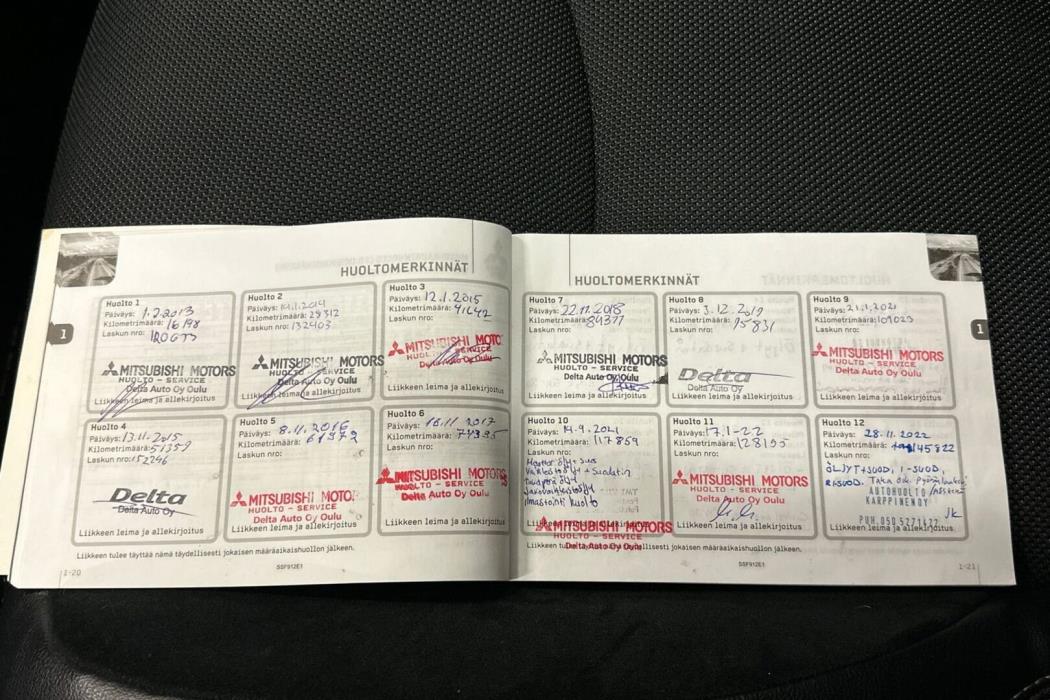 HUOLTOMERKINNÄT
Huolto 1
Päiväys: 1.2.2013
Kilometrimäärä: 16198
Laskun nro:
MITSUBISHI MOTORS
HUOLTO - SERVICE
Delta Auto Oy Oulu
Liikkeen leima ja allekirjoitus
Huolto 2
Päiväys: 14.1.2014
Kilometrimäärä: 29312
Laskun nro: 132403
MITSUBISHI MOTORS
HUOLTO - SERVICE
Delta Auto Oy Oulu
Liikkeen leima ja allekirjoitus
Huolto 3
Päiväys: 12.1.2015
Kilometrimäärä: 41642
Laskun nro:
MITSUBISHI MOTO
HUOLTO - SERVICE
Delta Auto Oy Oulu
Liikkeen leima ja allekirjoitus
Huolto 4
Päiväys: 13.11.2015
Kilometrimäärä: 51359
Laskun nro: 152246
Delta
Delta Auto Oy
Liikkeen leima ja allekirjoitus
Huolto 5
Päiväys: 8.11.2016
Kilometrimäärä: 61372
Laskun nro:
MITSUBISHI MOTO
HUOLTO - SERVICE
Delta Auto Oy Oulu
Liikkeen leima ja allekirjoitus
Huolto 6
Päiväys: 16.11.2017
Kilometrimäärä: 74335
Laskun nro:
MITSUBISHI MOTORS
HUOLTO - SERVICE
Delta Auto Oy Oulu
Liikkeen leima ja allekirjoitus
Liikkeen tulee täyttää nämä täydellisesti jokaisen määräaikaishuollon jälkeen.
1-20
SSF912E1
1
HUOLTOMERKINNÄT
Huolto 7
Päiväys: 22.11.2018
Kilometrimäärä: 84377
Laskun nro:
MITSUBISHI MOTORS
HUOLTO - SERVICE
Delta Auto Oy Oulu
Liikkeen leima ja allekirjoitus
Huolto 8
Päiväys: 3.12.2019
Kilometrimäärä: 95831
Laskun nro:
Delta
Delta Auto Oy
Liikkeen leima ja allekirjoitus
Huolto 9
Päiväys: 21.1.2021
Kilometrimäärä: 109023
Laskun nro:
MITSUBISHI MOTORS
HUOLTO - SERVICE
Delta Auto Oy Oulu
Liikkeen leima ja allekirjoitus
Huolto 10
Päiväys: 14.9.2021
Kilometrimäärä: 117859
Laskun nro:
Moottoriöljy + suod
Vaihteistoöljy + Suodatin
Takapyörä öljy
Jakovaihteistoöljy
Ilmastointi huolto
MITSUBISHI MOTORS
HUOLTO - SERVICE
Delta Auto Oy Oulu
Huolto 11
Päiväys: 17.1-22
Kilometrimäärä: 128195
Laskun nro:
MITSUBISHI MOTORS
HUOLTO - SERVICE
Delta Auto Oy Oulu
Liikkeen leima ja allekirjoitus
Huolto 12
Päiväys: 28.11.2022
Kilometrimäärä: 145822
Laskun nro:
ÖLJYT+SUOD, I-SUOD,
RSUOD. Taka
AUTOHUOLTO
KARPPINEN OY
JK
PUH. 050 5271622
Liikkeen leima ja allekirjoitus
Liikkeen tulee täyttää nämä täydellisesti jokaisen määräaikaishuollon jälkeen.
SSF912E1
1-21
1